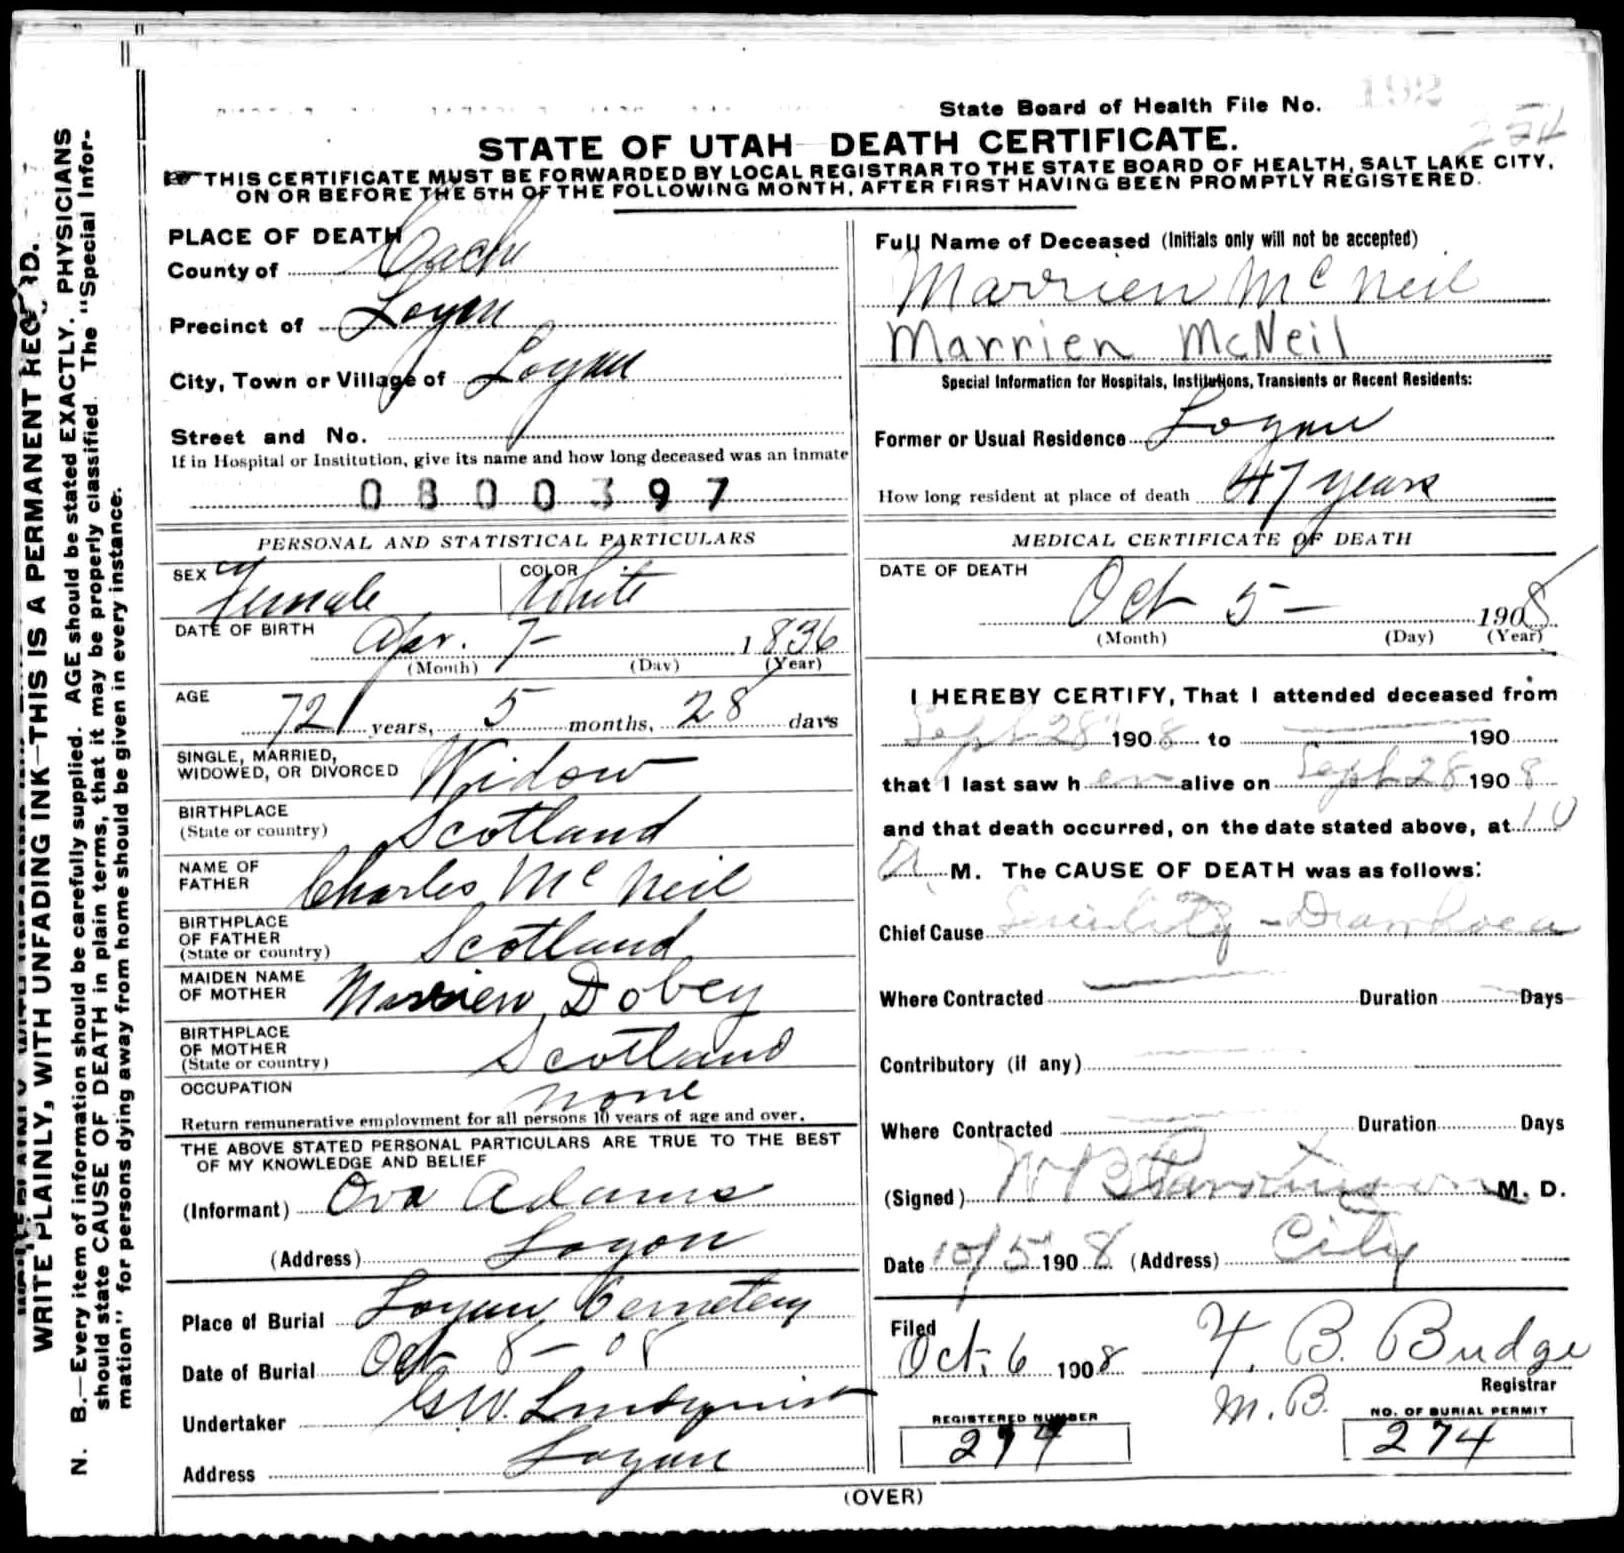 State Board of Health File No. 192
274
STATE OF UTAH DEATH CERTIFICATE.
THIS CERTIFICATE MUST BE FORWARDED BY LOCAL REGISTRAR TO THE STATE BOARD OF HEALTH, SALT LAKE CITY,
ON OR BEFORE THE 5TH OF THE FOLLOWING MONTH, AFTER FIRST HAVING BEEN PROMPTLY REGISTERED.
WRITE PLAINLY, WITH UNFADING INK—THIS IS A PERMANENT RECORD.
N. B.—Every item of information should be carefully supplied. AGE should be stated EXACTLY. PHYSICIANS
should state CAUSE OF DEATH in plain terms, that it may be properly classified. The "Special Infor-
mation" for persons dying away from home should be given in every instance.
PLACE OF DEATH
County of Cache
Precinct of Logan
City, Town or Village of Logan
Street and No.
If in Hospital or Institution, give its name and how long deceased was an inmate
0800397
PERSONAL AND STATISTICAL PARTICULARS
SEX Female COLOR White
DATE OF BIRTH Apr. 7 - 1836
(Month) (Day) (Year)
AGE 72 years, 5 months, 28 days
SINGLE, MARRIED,
WIDOWED, OR DIVORCED Widow
BIRTHPLACE
(State or country) Scotland
NAME OF
FATHER Charles McNeil
BIRTHPLACE
OF FATHER
(State or country) Scotland
MAIDEN NAME
OF MOTHER Marrien Dobey
BIRTHPLACE
OF MOTHER
(State or country) Scotland
OCCUPATION none
Return remunerative employment for all persons 10 years of age and over.
THE ABOVE STATED PERSONAL PARTICULARS ARE TRUE TO THE BEST
OF MY KNOWLEDGE AND BELIEF
(Informant) Ova Adams
(Address) Logan
Place of Burial Logan Cemetery
Date of Burial Oct 8 - 08
Undertaker G.W. Lindquist
Address Logan
Full Name of Deceased (Initials only will not be accepted)
Marrien McNeil
Marrien McNeil
Special Information for Hospitals, Institutions, Transients or Recent Residents:
Former or Usual Residence Logan
How long resident at place of death 47 years
MEDICAL CERTIFICATE OF DEATH
DATE OF DEATH
Oct 5 - 1908
(Month) (Day) (Year)
I HEREBY CERTIFY, That I attended deceased from
Sept 28 1908 to — 190
that I last saw her alive on Sept 28 1908
and that death occurred, on the date stated above, at 10
A. M. The CAUSE OF DEATH was as follows:
Chief Cause Senility - Diarrhoea
Where Contracted — Duration — Days
Contributory (if any) —
Where Contracted — Duration Days
(Signed) W B Parkinson M. D.
Date 10/5 1908 (Address) City
Filed
Oct. 6 1908 F. B. Budge
Registrar
M. B.
REGISTERED NUMBER
274
NO. OF BURIAL PERMIT
274
(OVER)